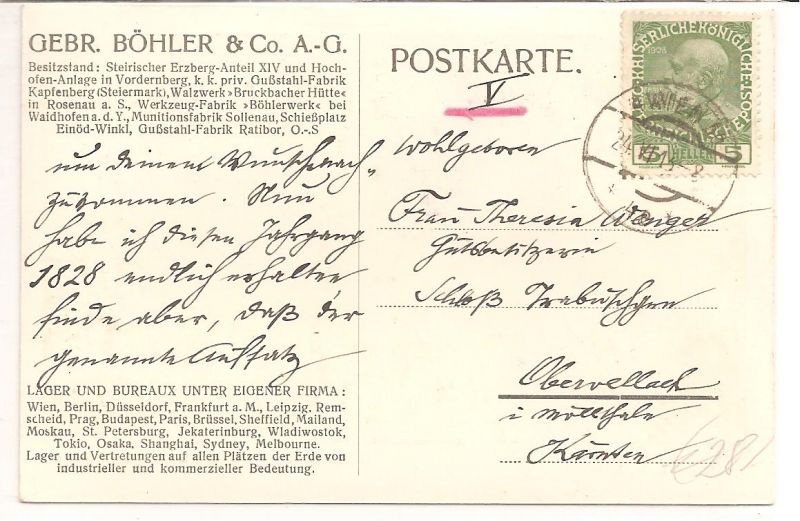 GEBR. BÖHLER & Co. A.-G.
Besitzstand: Steirischer Erzberg-Anteil XIV und Hoch-
ofen-Anlage in Vordernberg, k. k. priv. Gußstahl-Fabrik
Kapfenberg (Steiermark), Walzwerk »Bruckbacher Hütte«
in Rosenau a. S., Werkzeug-Fabrik »Böhlerwerk« bei
Waidhofen a. d. Y., Munitionsfabrik Sollenau, Schießplatz
Einöd-Winkl, Gußstahl-Fabrik Ratibor, O.-S
um deinem Wunsche nach„
zukommen. Nun
habe ich diesen Jahrgang
1828 endlich erhalten
finde aber, daß der
genannte Aufsatz
LAGER UND BUREAUX UNTER EIGENER FIRMA:
Wien, Berlin, Düsseldorf, Frankfurt a. M., Leipzig, Rem-
scheid, Prag, Budapest, Paris, Brüssel, Sheffield, Mailand,
Moskau, St. Petersburg, Jekaterinburg, Wladiwostok,
Tokio, Osaka, Shanghai, Sydney, Melbourne.
Lager und Vertretungen auf allen Plätzen der Erde von
industrieller und kommerzieller Bedeutung.
POSTKARTE.
V
KAISERLICHE KÖNIGLICHE
1908
5 HELLER 5
WIEN
Wohlgeboren
Frau Theresia Wenger
Gutsbesitzerin
Schloß Trabuschgen
Obervellach
i Möllthale
Kärnten